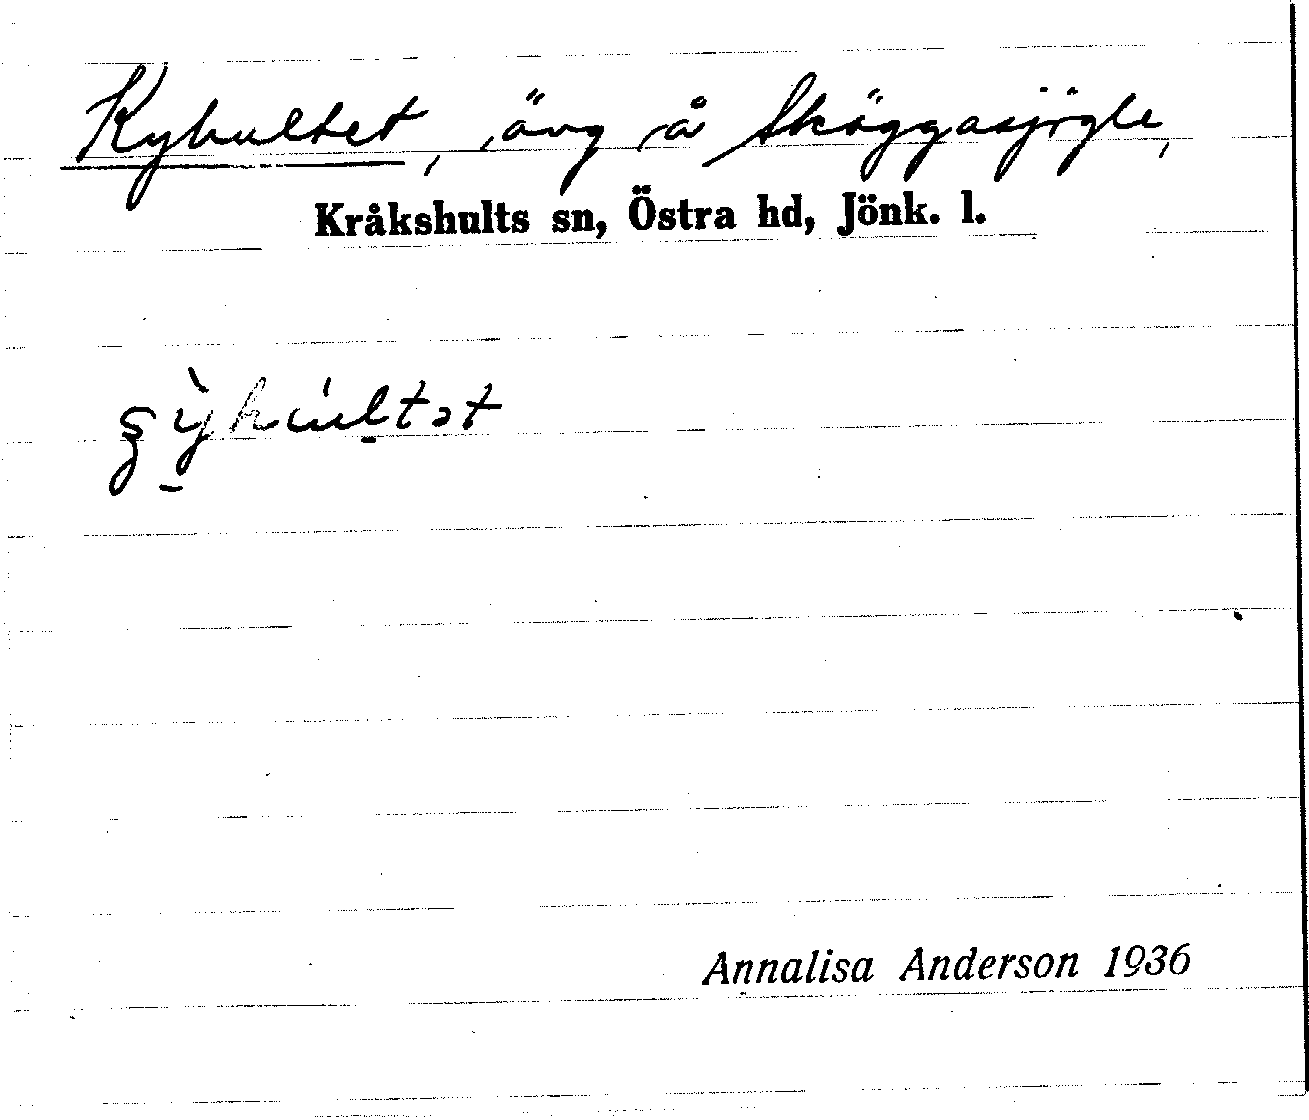 Kyhultet, äng å Sköggasjögle,
Kråkshults sn, Östra hd, Jönk. l.
Annalisa Anderson 1936